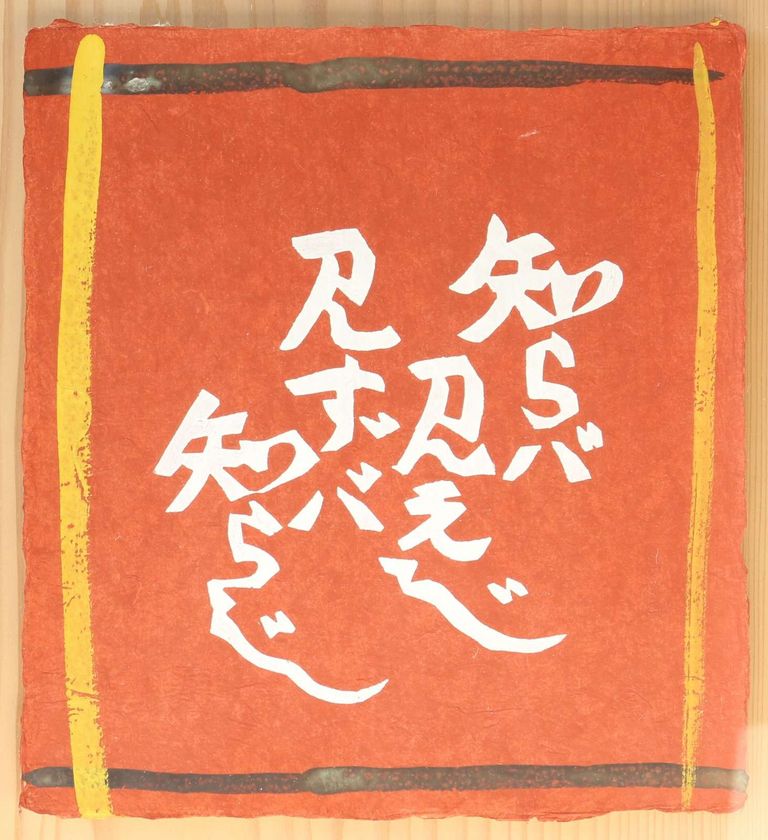 知らバ
見えじ
見ずバ
知らじ